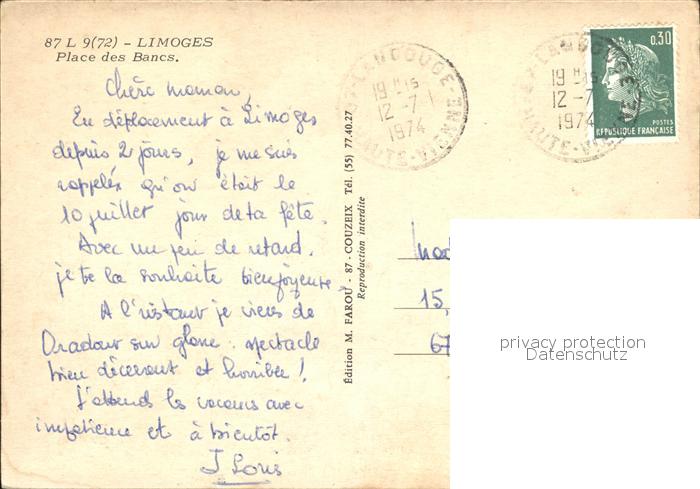 87 L 9(72) - LIMOGES
Place des Bancs.
Chère maman,
En déplacement à Limoges
depuis 2 jours, je me suis
rappelée qu'on était le
10 juillet jour de ta fête.
Avec un peu de retard.
je te la souhaite bien joyeuse
A l'instant je viens de
Oradour sur glane : spectacle
bien décevant et horrible !
J'attends les vacances avec
impatience et à bientôt.
Édition M. FAROU - 87 - COUZEIX Tél. (55) 77.40.27
Reproduction interdite
87-LANDOUGE
19 H 15
12-7
1974
HAUTE-VIENNE
87-LANDOUGE
19 H 15
12-7
1974
HAUTE-VIENNE
0,30
POSTES
REPUBLIQUE FRANÇAISE
15,
67
privacy protection
Datenschutz